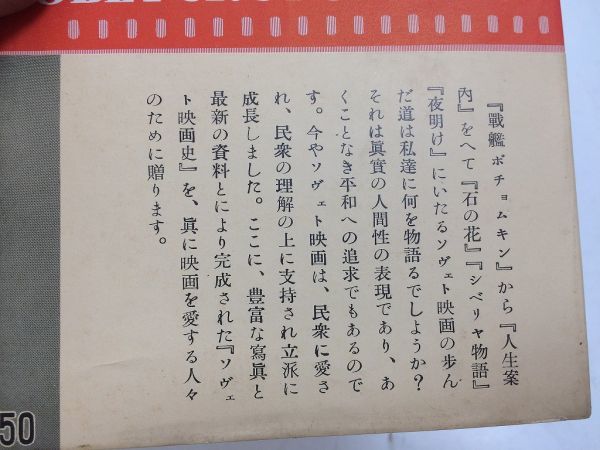 『戰艦ポチョムキン』から『人生案
內』をへて『石の花』『シベリヤ物語』
『夜明け』にいたるソヴェト映画の歩ん
だ道は私達に何を物語るでしようか？
それは眞實の人間性の表現であり、あ
くことなき平和への追求でもあるので
す。今やソヴェト映画は、民衆に愛さ
れ、民衆の理解の上に支持され立派に
成長しました。ここに、豊富な寫眞と
最新の資料とにより完成された『ソヴェ
ト映画史』を、眞に映画を愛する人々
のために贈ります。
50